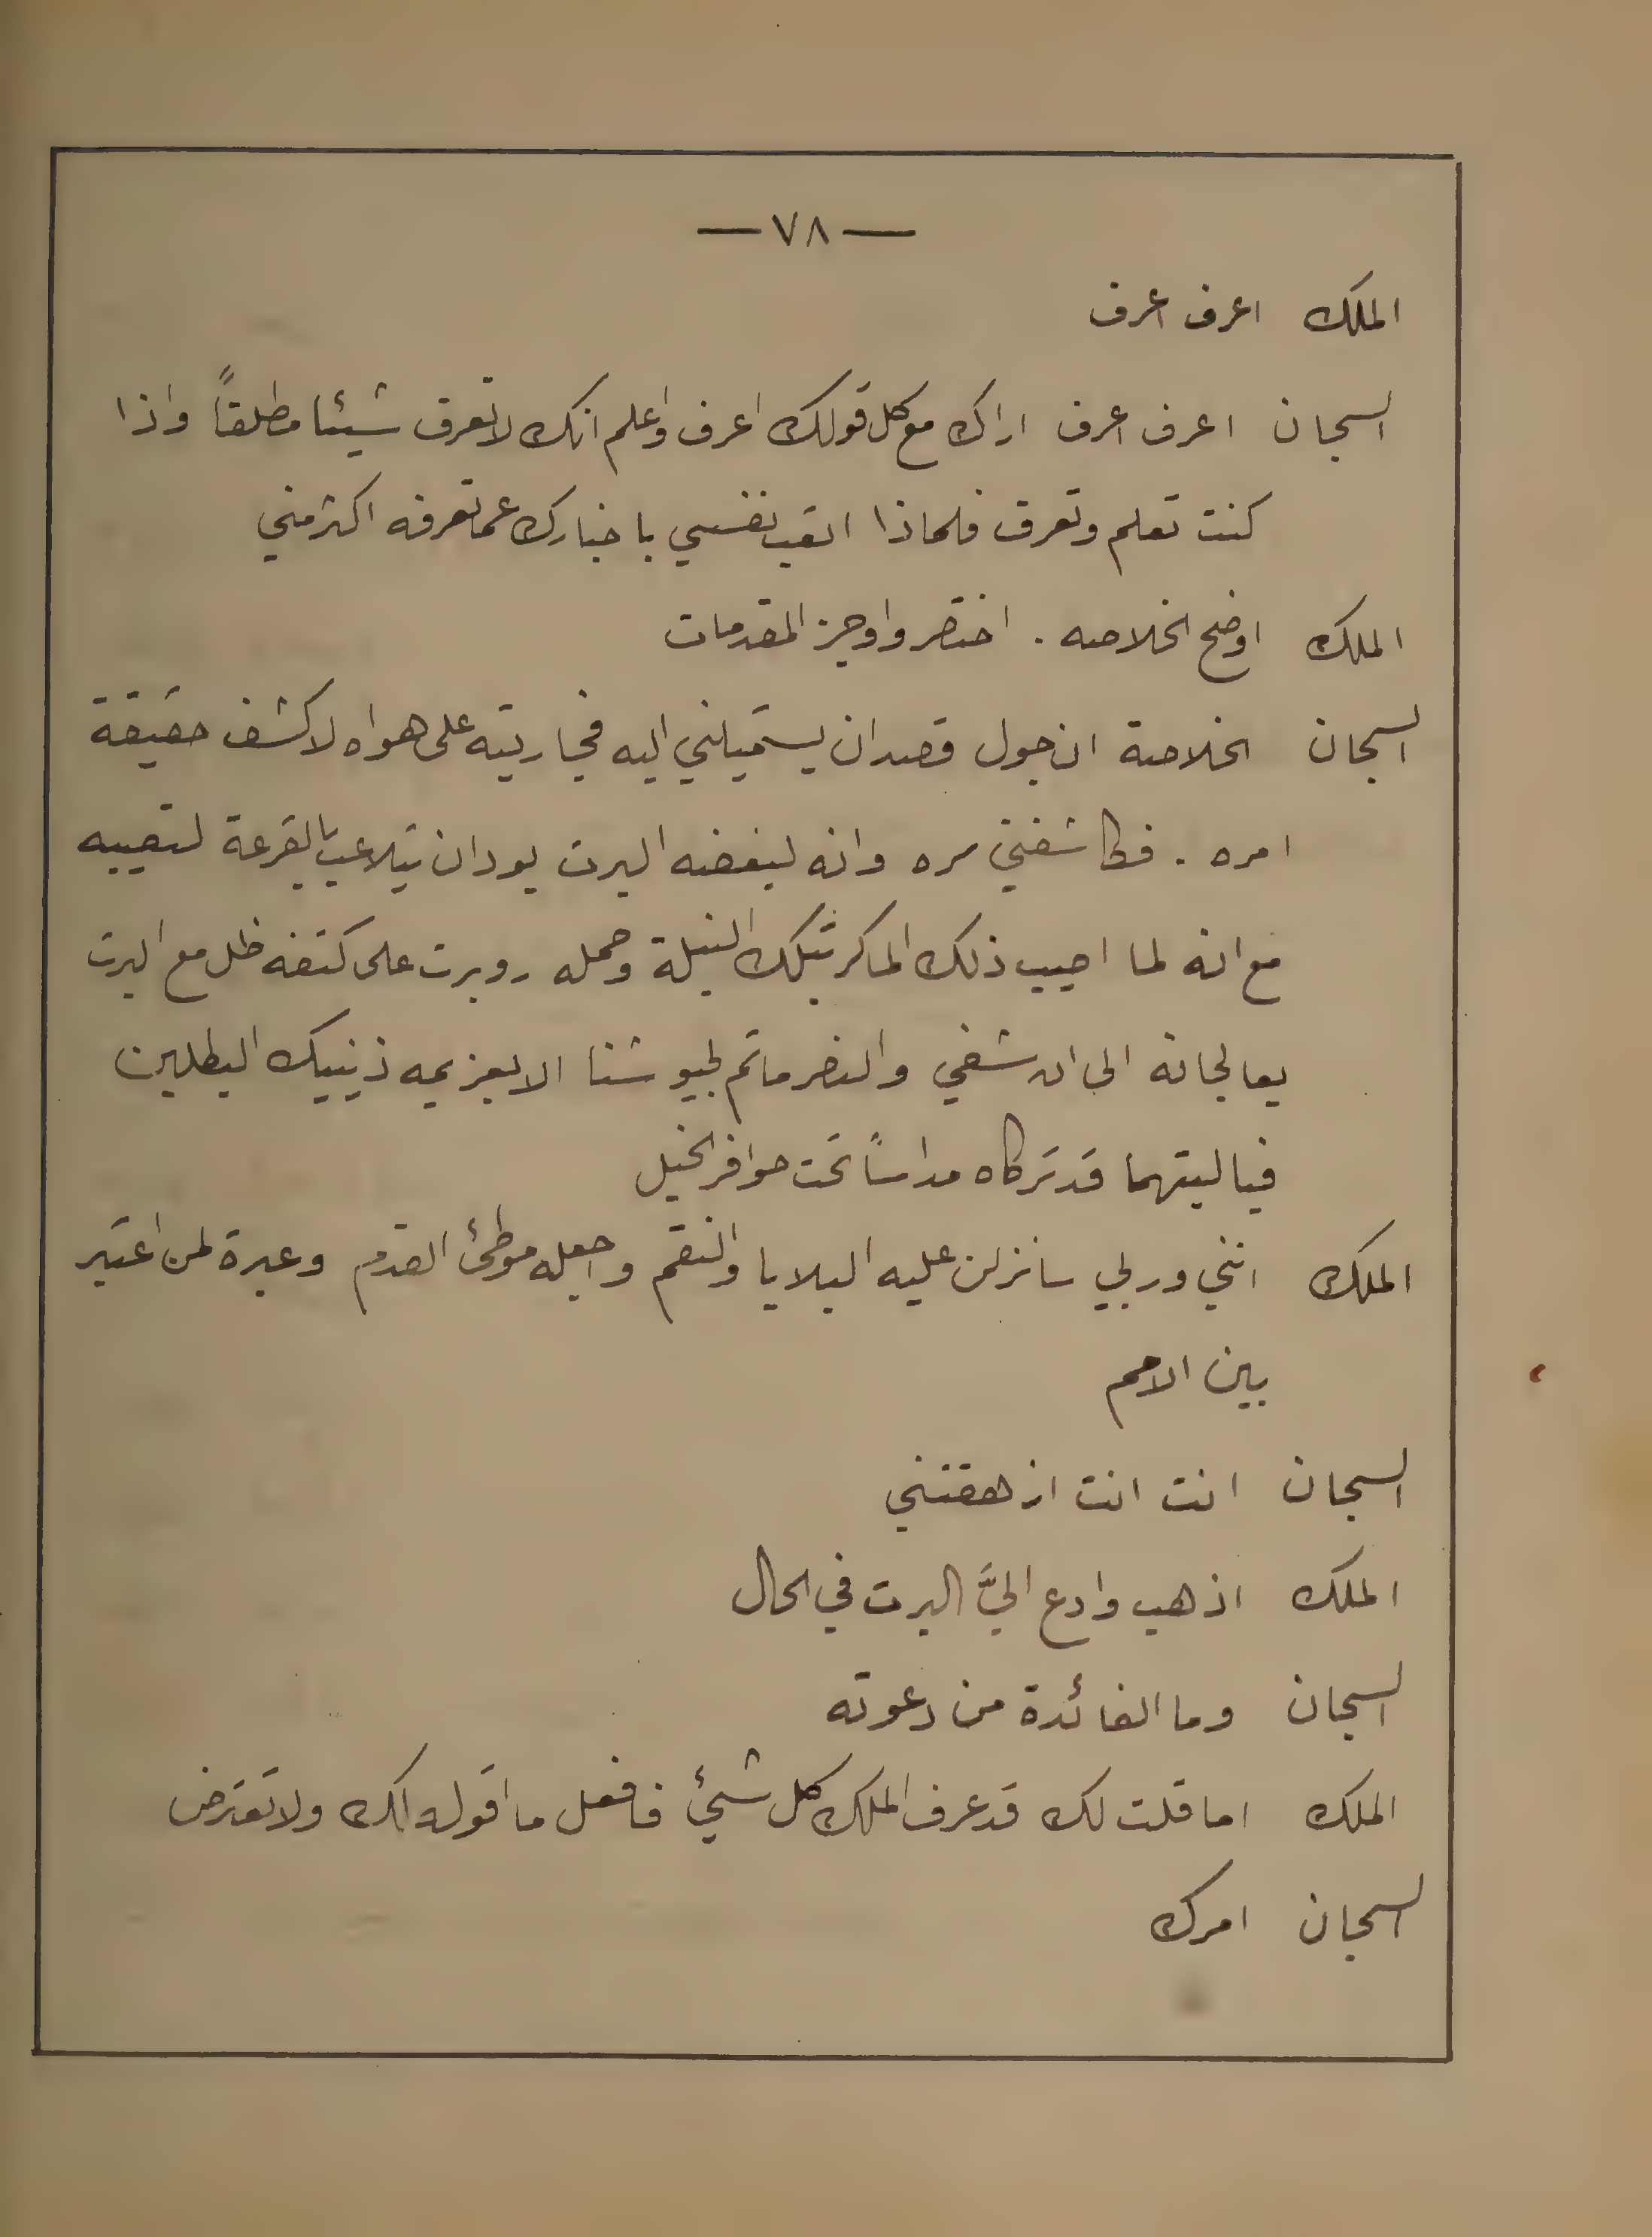 — ٧٨ —
الملك اعرف اعرف
السجان اعرف اعرف اراك مع كل قولك اعرف واعلم انك لا تعرف شيئا مطلقاً واذا
كنت تعلم وتعرف فلماذا اتعب نفسي باخبارك عما تعرفه اكثر مني
الملك اوضح الخلاصه . اختصر واوجز المقدمات
السجان الخلاصة ان جول قصد ان يستميلني اليه فجاريته على هواه لاكشف حقيقة
امره . فكاشفني سره وانه لبغضه البرت يود ان يتلاعب بالقرعة لتصيبه
مع انه لما اصيب ذلك الماكر بتلك النبلة وحمله روبرت على كتفه ظل مع البرت
يعالجانه الى ان شفي والنصر ما تم لجيوشنا الا بعزيمه ذينيك البطلين
فيا ليتهما قد تركاه مداساً تحت حوافر الخيل
الملك انني وربي سانزلن عليه البلايا والنقم واجعله موطئ القدم وعبرة لمن اعتبر
بين الامم
السجان انت انت ازهقتني
الملك اذهب وادع اليَّ البرت في الحال
السجان وما الفائدة من دعوته
الملك اما قلت لك قد عرف الملك كل شيئ فافعل ما اقوله لك ولا تعترض
السجان امرك